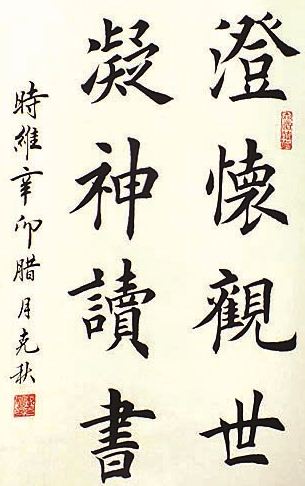 澄懷觀世
凝神讀書
時維辛卯腊月克秋